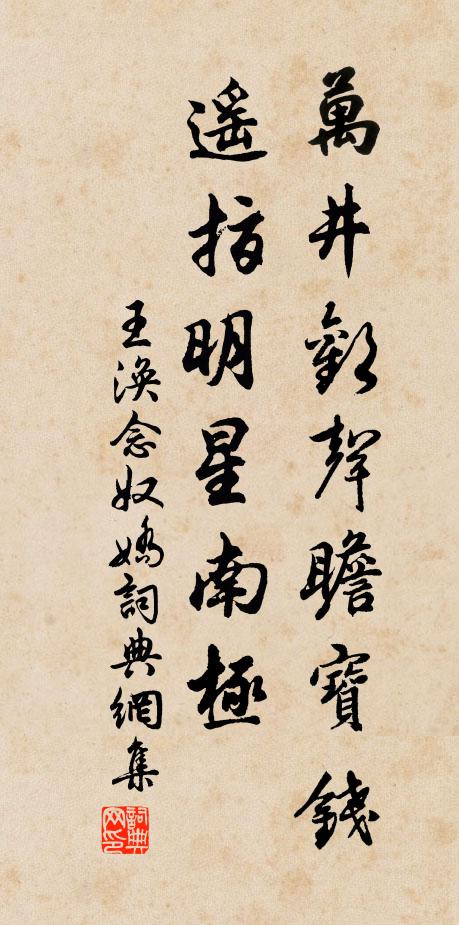 萬井歡聲瞻寶錢
遙指明星南極
王渙念奴嬌詞典網集
詞典网印